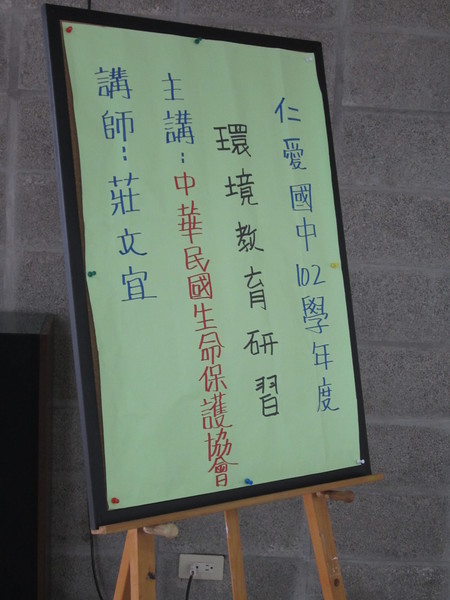 仁愛國中102學年度
環境教育研習
主講：中華民國生命保護協會
講師：莊文宜